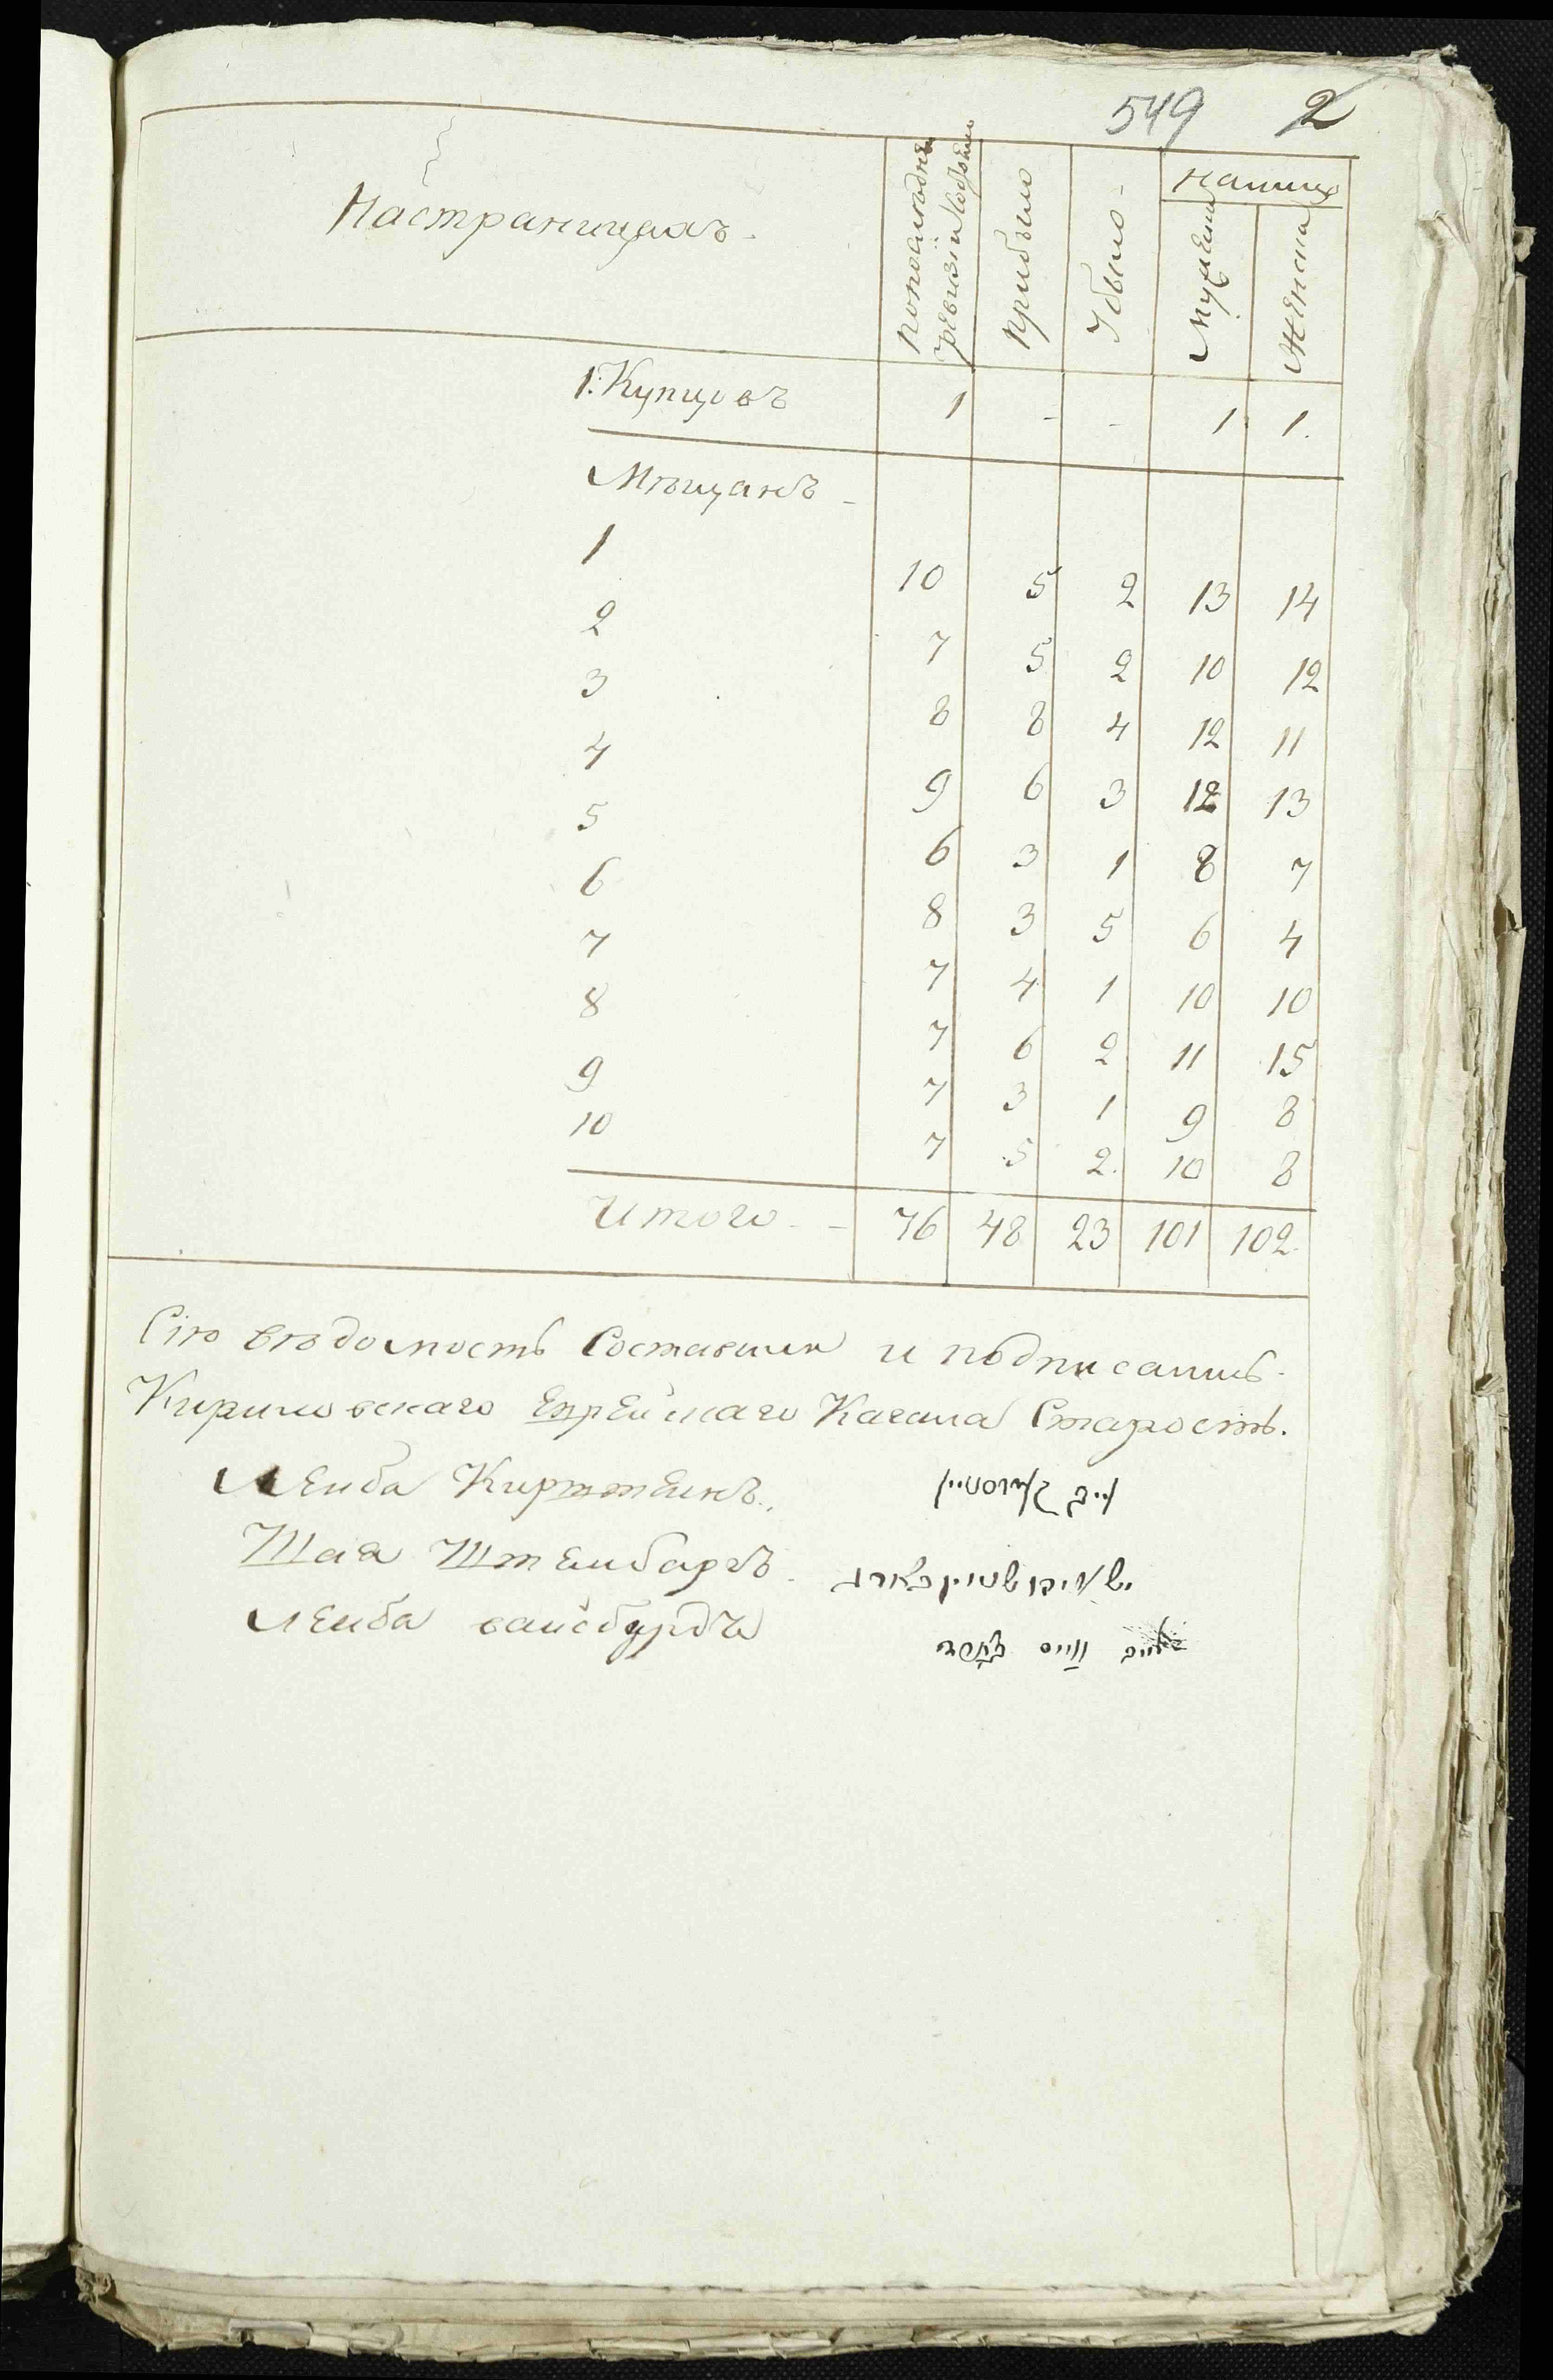 549 2
Настраницахъ
попоследней ревизіи Состояло
прибыло
Убыло
налицо
Мужеска
Женска
1. Купцовъ 1 - - 1 1.
Мѣщанъ
1 10 5 2 13 14
2 7 5 2 10 12
3 8 8 4 12 11
4 9 6 3 12 13
5 6 3 1 8 7
6 8 3 5 6 4
7 7 4 1 10 10
8 7 6 2 11 15
9 7 3 1 9 8
10 7 5 2 10 8
Итого 76 48 23 101 102
Сію вѣдомость Составили и подписались
Кириловскаго Еврейскаго Кагала Старосты.
Леиба Кирштеинъ
Шая Штеинбаргъ
ישעיה שטיינבארג
Леиба ваисбурдъ
לייב ווייס